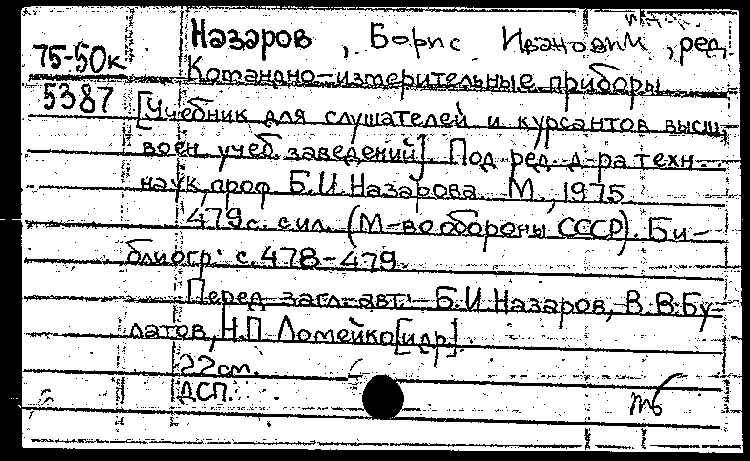 Назаров, Борис Иванович, ред.
75-50к
5387
Командно-измерительные приборы
[Учебник для слушателей и курсантов высш.
воен. учеб. заведений]. Под ред. д-ра техн.
наук, проф. Б.И.Назарова. М., 1975.
479 с. с ил. (М-во обороны СССР). Би-
блиогр: с. 478-479.
Перед загл. авт: Б.И.Назаров, В.В.Бу-
латов, Н.П. Ломейко [и др.]
22 см.
ДСП.